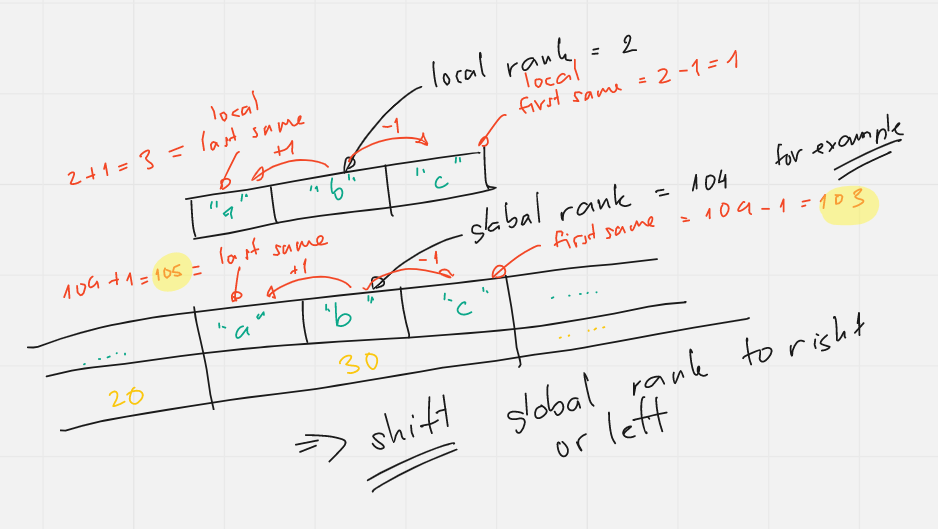 local rank = 2
local
first same = 2-1=1
local
last same
2+1=3=
+1
-1
for example
"a" "b" "c"
global rank = 104
first same = 104-1=103
last same
104+1=105=
+1
-1
..... "a" "b" "c" .....
20 30 .....
⇒ shift global rank to right
or left